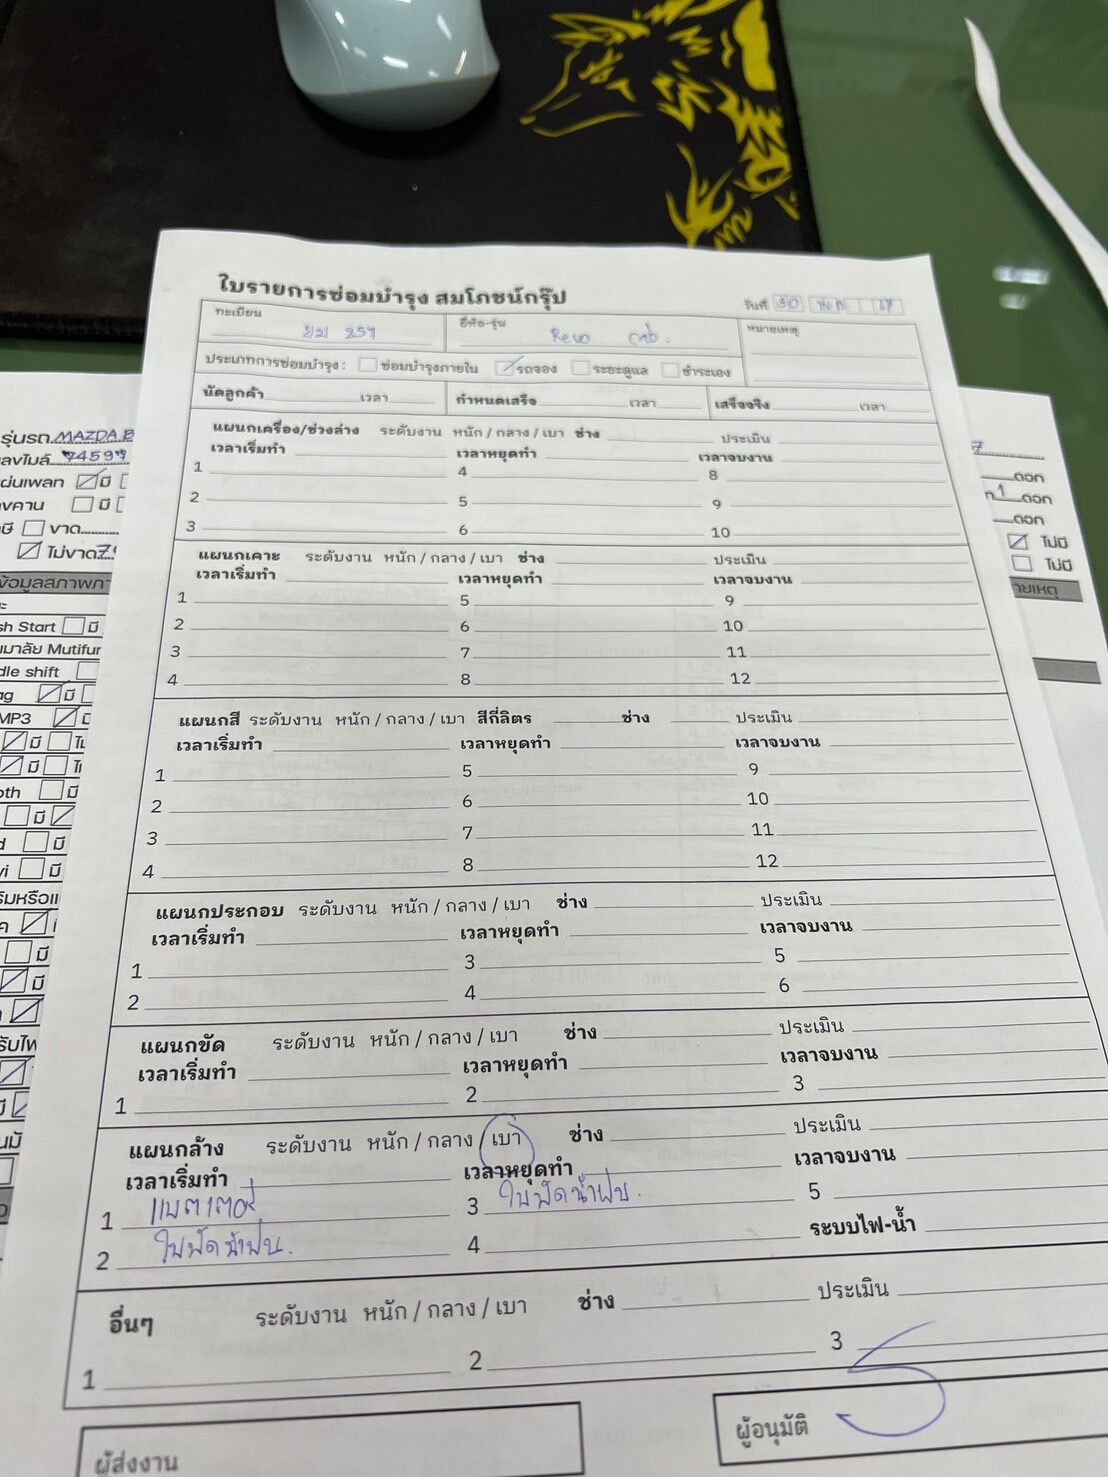 ใบรายการซ่อมบำรุง สมโภชน์กรุ๊ป
วันที่ 30 พ.ค. 67
ทะเบียน
ยี่ห้อ-รุ่น Revo cab.
หมายเหตุ
ประเภทการซ่อมบำรุง : ซ่อมบำรุงภายใน รถจอง ระยะดูแล ชำระเอง
นัดลูกค้า เวลา กำหนดเสร็จ เวลา เสร็จจริง เวลา
แผนกเครื่อง/ช่วงล่าง ระดับงาน หนัก / กลาง / เบา ช่าง ประเมิน
เวลาเริ่มทำ เวลาหยุดทำ เวลาจบงาน
1 4 8
2 5 9
3 6 10
แผนกเคาะ ระดับงาน หนัก / กลาง / เบา ช่าง ประเมิน
เวลาเริ่มทำ เวลาหยุดทำ เวลาจบงาน
1 5 9
2 6 10
3 7 11
4 8 12
แผนกสี ระดับงาน หนัก / กลาง / เบา สีกี่ลิตร ช่าง ประเมิน
เวลาเริ่มทำ เวลาหยุดทำ เวลาจบงาน
1 5 9
2 6 10
3 7 11
4 8 12
แผนกประกอบ ระดับงาน หนัก / กลาง / เบา ช่าง ประเมิน
เวลาเริ่มทำ เวลาหยุดทำ เวลาจบงาน
1 3 5
2 4 6
แผนกขัด ระดับงาน หนัก / กลาง / เบา ช่าง ประเมิน
เวลาเริ่มทำ เวลาหยุดทำ เวลาจบงาน
1 2 3
แผนกล้าง ระดับงาน หนัก / กลาง / เบา ช่าง ประเมิน
เวลาเริ่มทำ เวลาหยุดทำ เวลาจบงาน
1 แบตเตอรี่ 3 ใบปัดน้ำฝน. 5
2 ใบปัดน้ำฝน. 4 ระบบไฟ-น้ำ
อื่นๆ ระดับงาน หนัก / กลาง / เบา ช่าง ประเมิน
1 2 3
ผู้ส่งงาน ผู้อนุมัติ
รุ่นรถ MAZDA
มี
ไม่ขาด
sh Start มี
MP3
ดอก
ดอก
ดอก
ไม่มี
ไม่มี